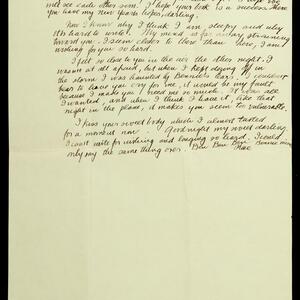 not see each other soon. I hope your book is a success. There
you have my New Years hopes, darling.
Now I know why I think I am sleepy and why
it's hard to write. My mind is far away straining
toward you. I seem closer to there than here, I am
wishing for you so hard.
I felt so close to you in the air the other night. I
wasn't at all afraid, but when I kept dozing off in
the storm I was haunted by Bonnie's tears. If
ever to leave you cry for me, it would be my fault
because I made you need me so much. It was all
I wanted, and when I think I have it, like that
night in the plane, it makes you seem so vulnerable.
I kiss your sweet body which I almost tasted
for a moment now. Goodnight my sweet darling
I can't write for wishing and longing so hard. I could
only say the same thing over. Bon Bon Bon Bonnie mine
Mac